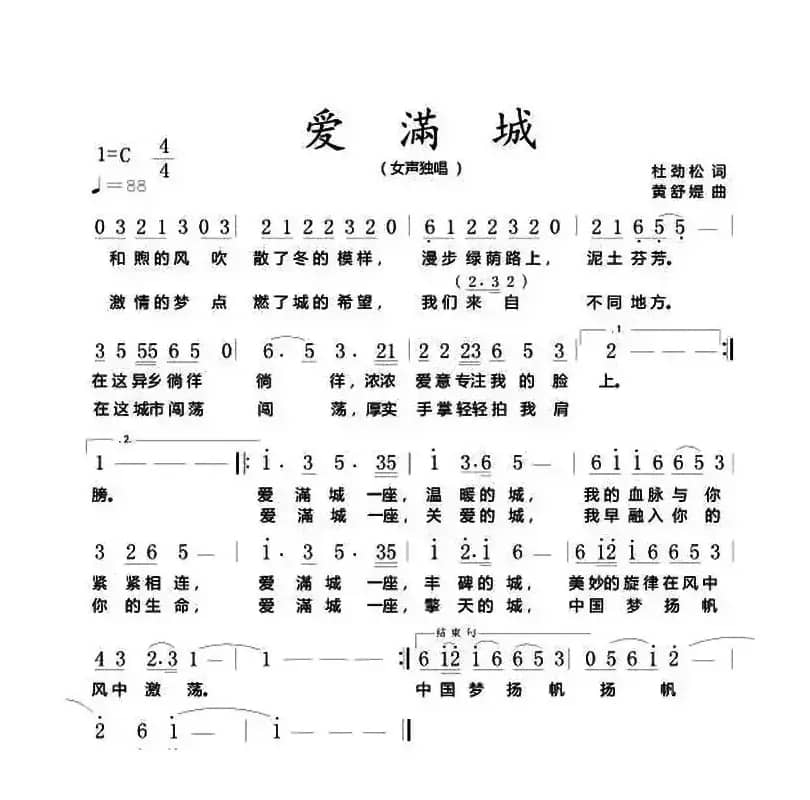 爱满城
（女声独唱）
1=C 4/4
♩=88
杜劲松 词
黄舒媞 曲
0 3 2 1 3 0 3 | 2 1 2 2 3 2 0 | 6 1 2 2 3 2 0 | 2 1 6 5 5 — |
和煦的风 吹 散了冬的 模样， 漫步 绿荫路上， 泥土 芬芳。
（2·3 2）
激情的梦 点 燃了城的 希望， 我们 来 自 不同 地方。
3 5 55 6 5 0 | 6· 5 3· 21 | 2 2 23 6 5 3 | 2 — :|
1.
在这异乡徜徉 徜 徉，浓浓 爱意专注我 的 脸 上。
在这城市闯荡 闯 荡，厚实 手掌轻轻拍 我 肩
2.
1 — — — :|: i· 3 5· 35 | i 3·6 5 — | 6 i i 6 6 5 3 |
膀。 爱 满 城 一座，温 暖的 城， 我的 血脉 与 你
爱 满 城 一座，关 爱的 城， 我早 融入 你 的
3 2 6 5 — | i· 3 5· 35 | i 2·i i — | 6 i2 i 6 6 5 3 |
紧 紧相 连， 爱 满 城 一座，丰 碑的 城， 美妙的旋律在风中
你 的生 命， 爱 满 城 一座，擎 天的 城， 中国 梦 扬 帆
结束句
4 3 2·3 1 — | 1 — — — :| 6 i2 i 6 6 5 3 | 0 5 6 i 2 — |
风中 激 荡。 中国 梦 扬 帆 扬 帆
2 6 i — | i — — — ‖